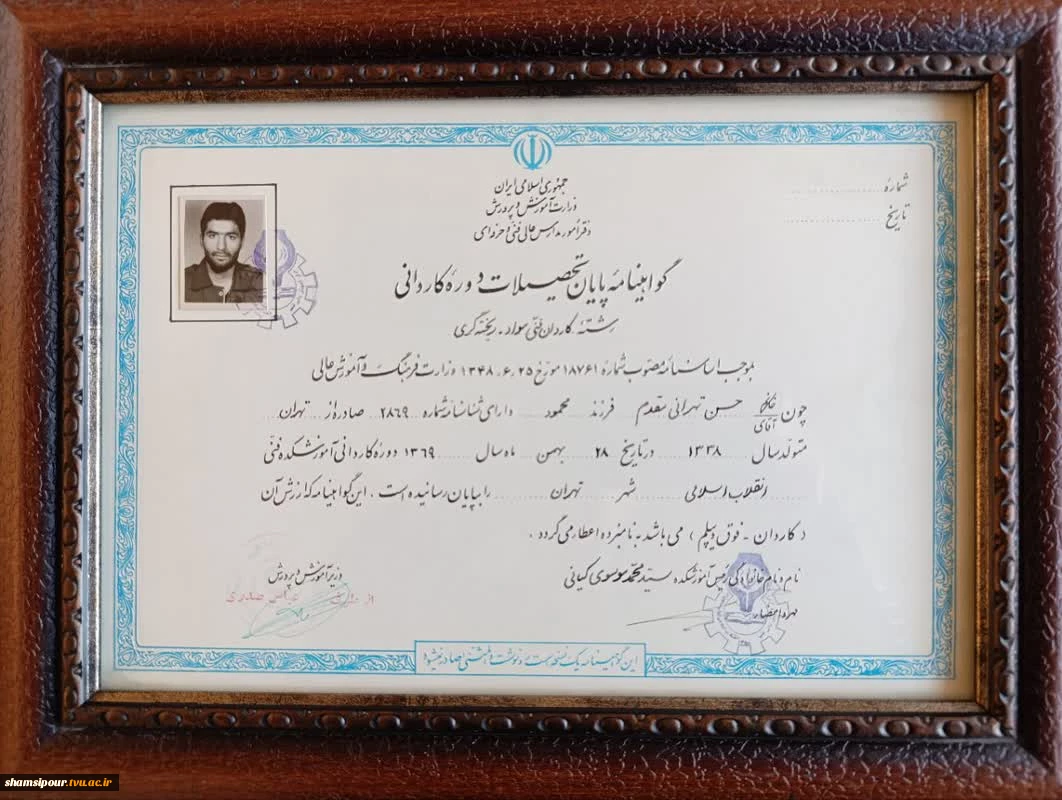 جمهوری اسلامی ایران
وزارت آموزش و پرورش
دفتر امور مدارس عالی فنی و حرفه‌ای
شمارهٔ
تاریخ
گواهینامهٔ پایان تحصیلات دورهٔ کاردانی
رشتهٔ کاردان فنی مواد - ریخته گری
بموجب اساسنامهٔ مصوب شمارهٔ ۱۸۷۶۱ مورّخ ۲۵ر۶ر۱۳۴۸ وزارت فرهنگ و آموزش عالی
چون خانم آقای حسن تهرانی مقدم فرزند محمود دارای شناسنامه شماره ۲۸۶۹ صادره از تهران
متولّد سال ۱۳۳۸ در تاریخ ۲۸ بهمن ماه سال ۱۳۶۹ دورهٔ کاردانی آموزشکده فنّی
انقلاب اسلامی شهر تهران را بپایان رسانیده است ، این گواهینامه که ارزش آن
( کاردان - فوق دیپلم ) می باشد به نامبرده اعطا می گردد .
نام و نام خانوادگی رئیس آموزشکده سیّد محمّد موسوی کیانی
مهر و امضاء
وزیر آموزش و پرورش
از طرف عباس صدری
این گواهینامه یک نسخه است و رونوشت یا المثنی صادر نمیشود
shamsipour.tvu.ac.ir